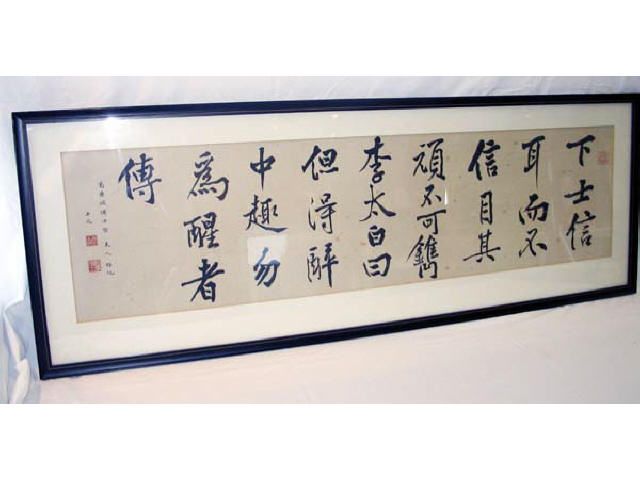 下士信
耳而不
信目其
頑不可鐫
李太白曰
但得醉
中趣勿
為醒者
傳